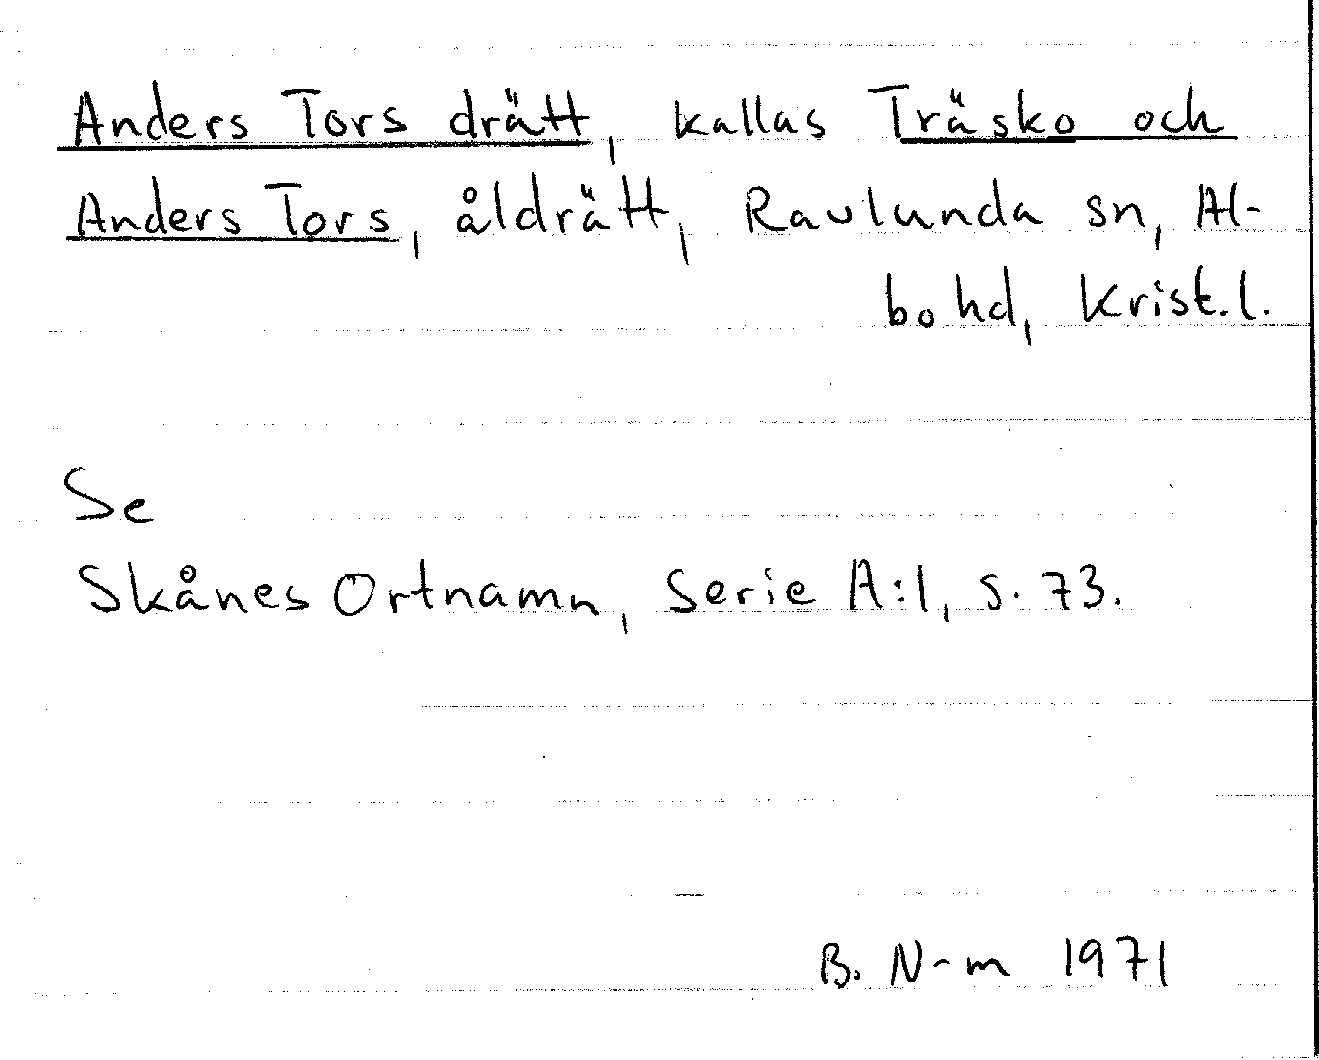 Anders Tors drätt, kallas Träsko och
Anders Tors, åldrätt, Ravlunda sn, Al-
bo hd, Krist.l.
Se
Skånes Ortnamn, Serie A:1, s. 73.
B. N-m 1971